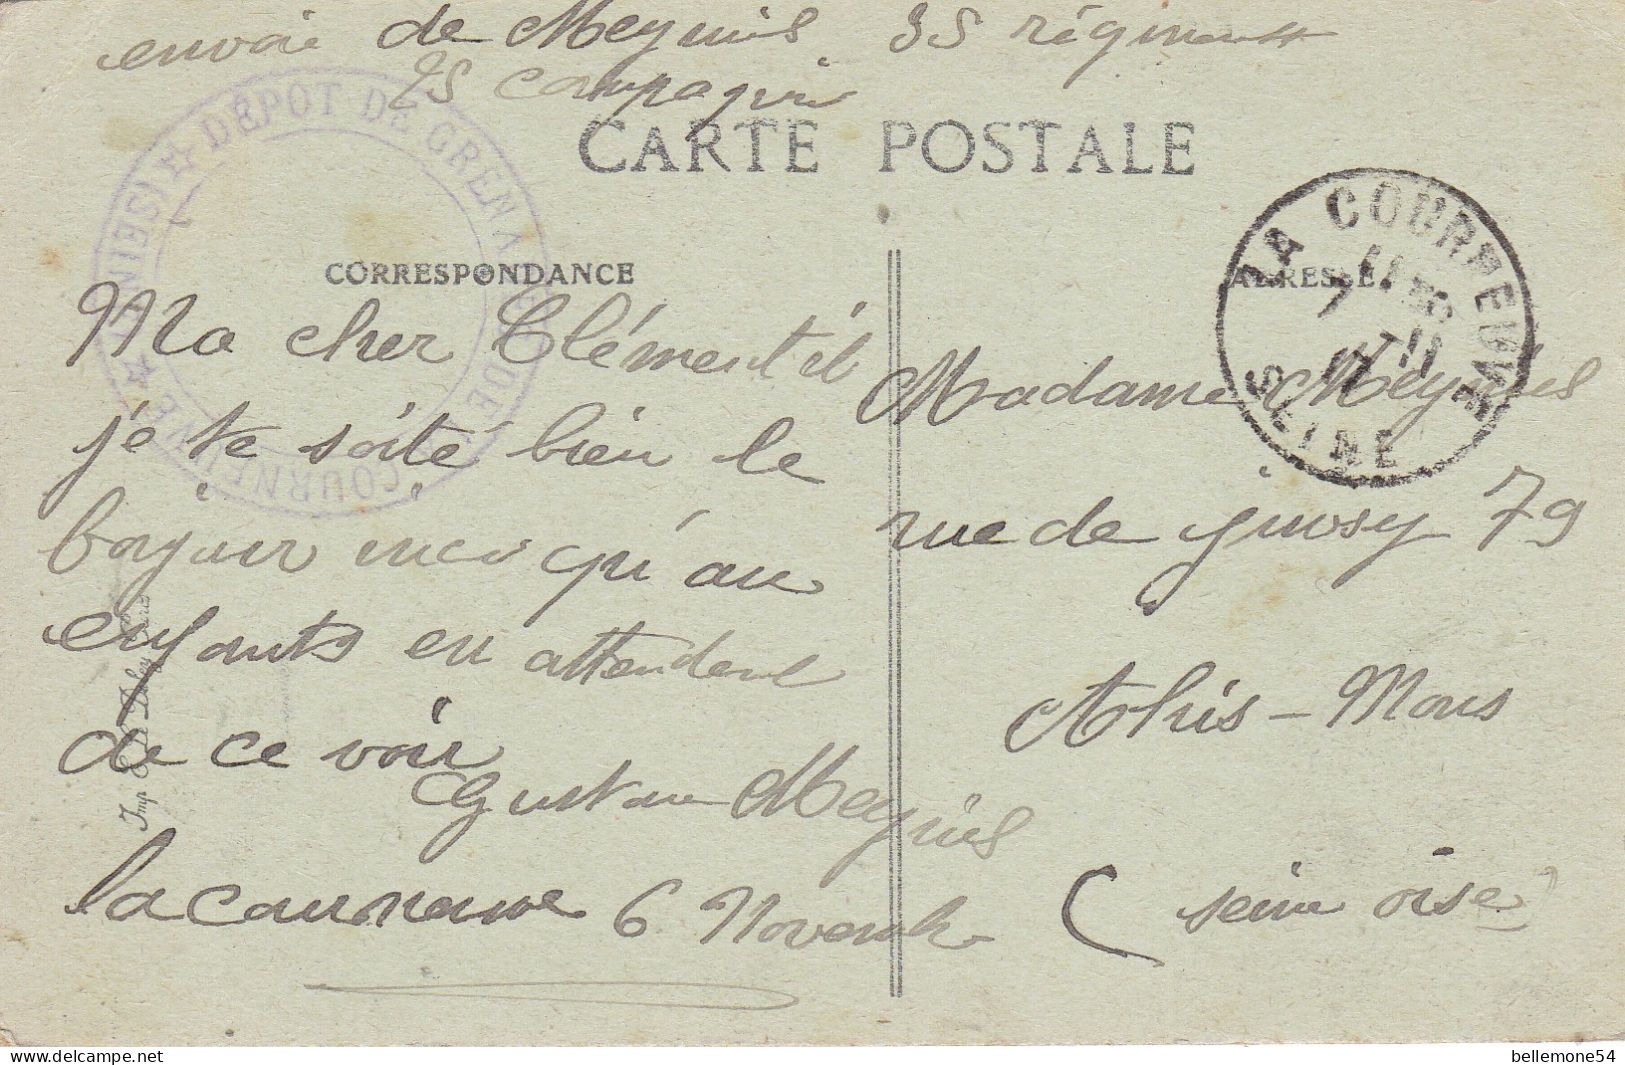 envoie de Meynis 35 régiment
25 compagni
CARTE POSTALE
DÉPOT DE GRENADE
COURNEUVE (SEINE)
CORRESPONDANCE
ADRESSE
LA COURNEUVE
SEINE
7 - 11
Ma cher Clément il
je te soite bien le
bonjour qu'au
enfants en attendent
de ce voir
Gustave Meynis
la courneuve 6 Novembre
Madame Meynis
rue de 79
Athis - Mons
( seine oise )
Imp
bellemone54